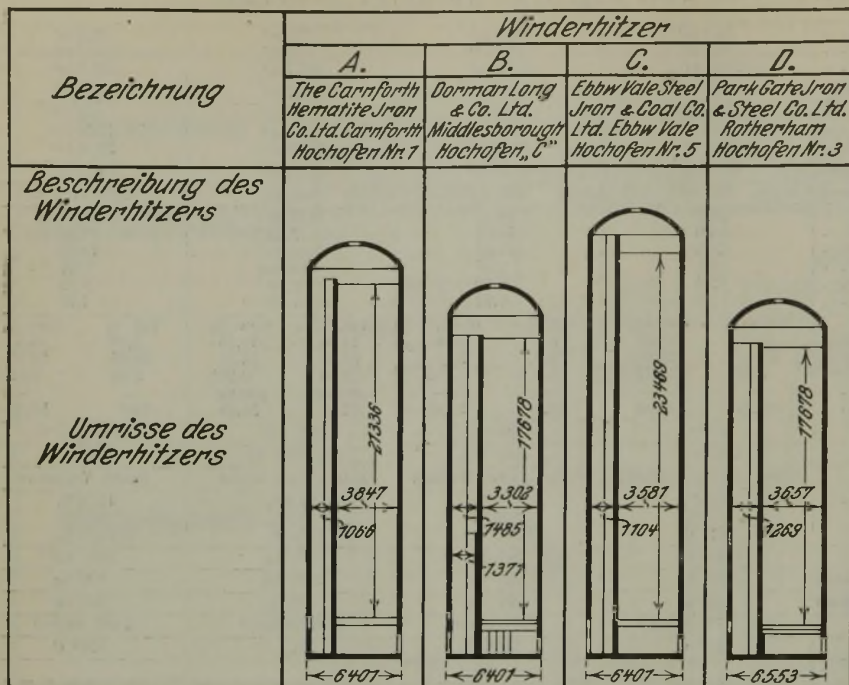 Winderhitzer
Bezeichnung
A.
The Carnforth
Hematite Iron
Co. Ltd. Carnforth
Hochofen Nr. 1
B.
Dorman Long
& Co. Ltd.
Middlesborough
Hochofen „C"
C.
Ebbw Vale Steel
Iron & Coal Co.
Ltd. Ebbw Vale
Hochofen Nr. 5
D.
Park Gate Iron
& Steel Co. Ltd.
Rotherham
Hochofen Nr. 3
Beschreibung des
Winderhitzers
Umrisse des
Winderhitzers
21336
3847
1066
6401
17678
3302
1485
1371
6401
23469
3581
1104
6401
17678
3657
1269
6553